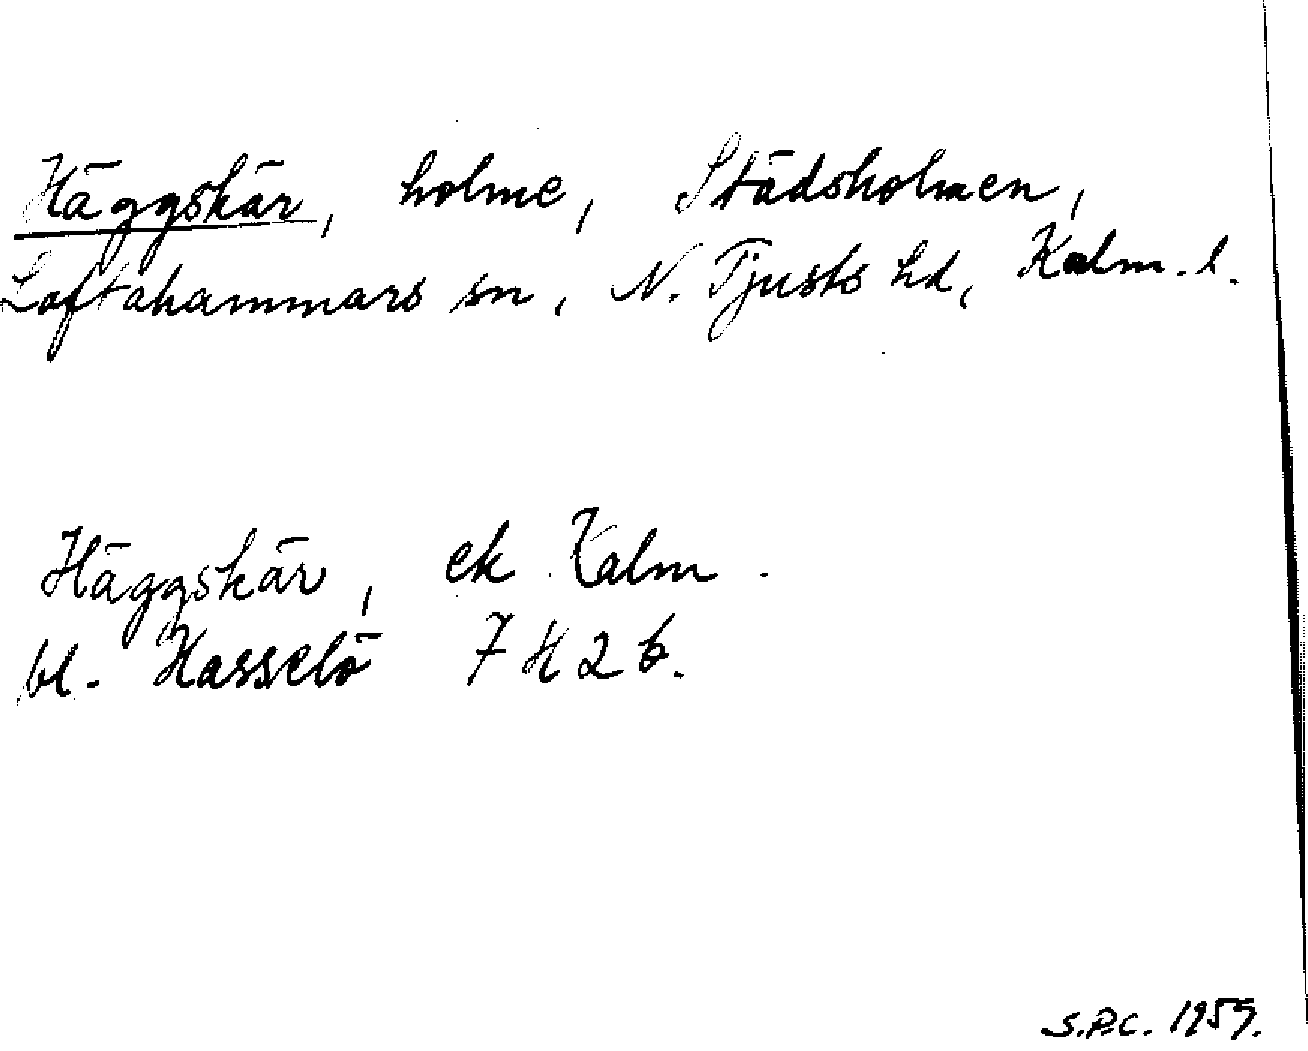 Häggskär, holme, Städsholmen,
Loftahammars sn, N. Tjusts hd, Kalm. l.
Häggskär, ek Kalm.
bl. Hasselö 7 H 2 b.
S.P.C. 1959.